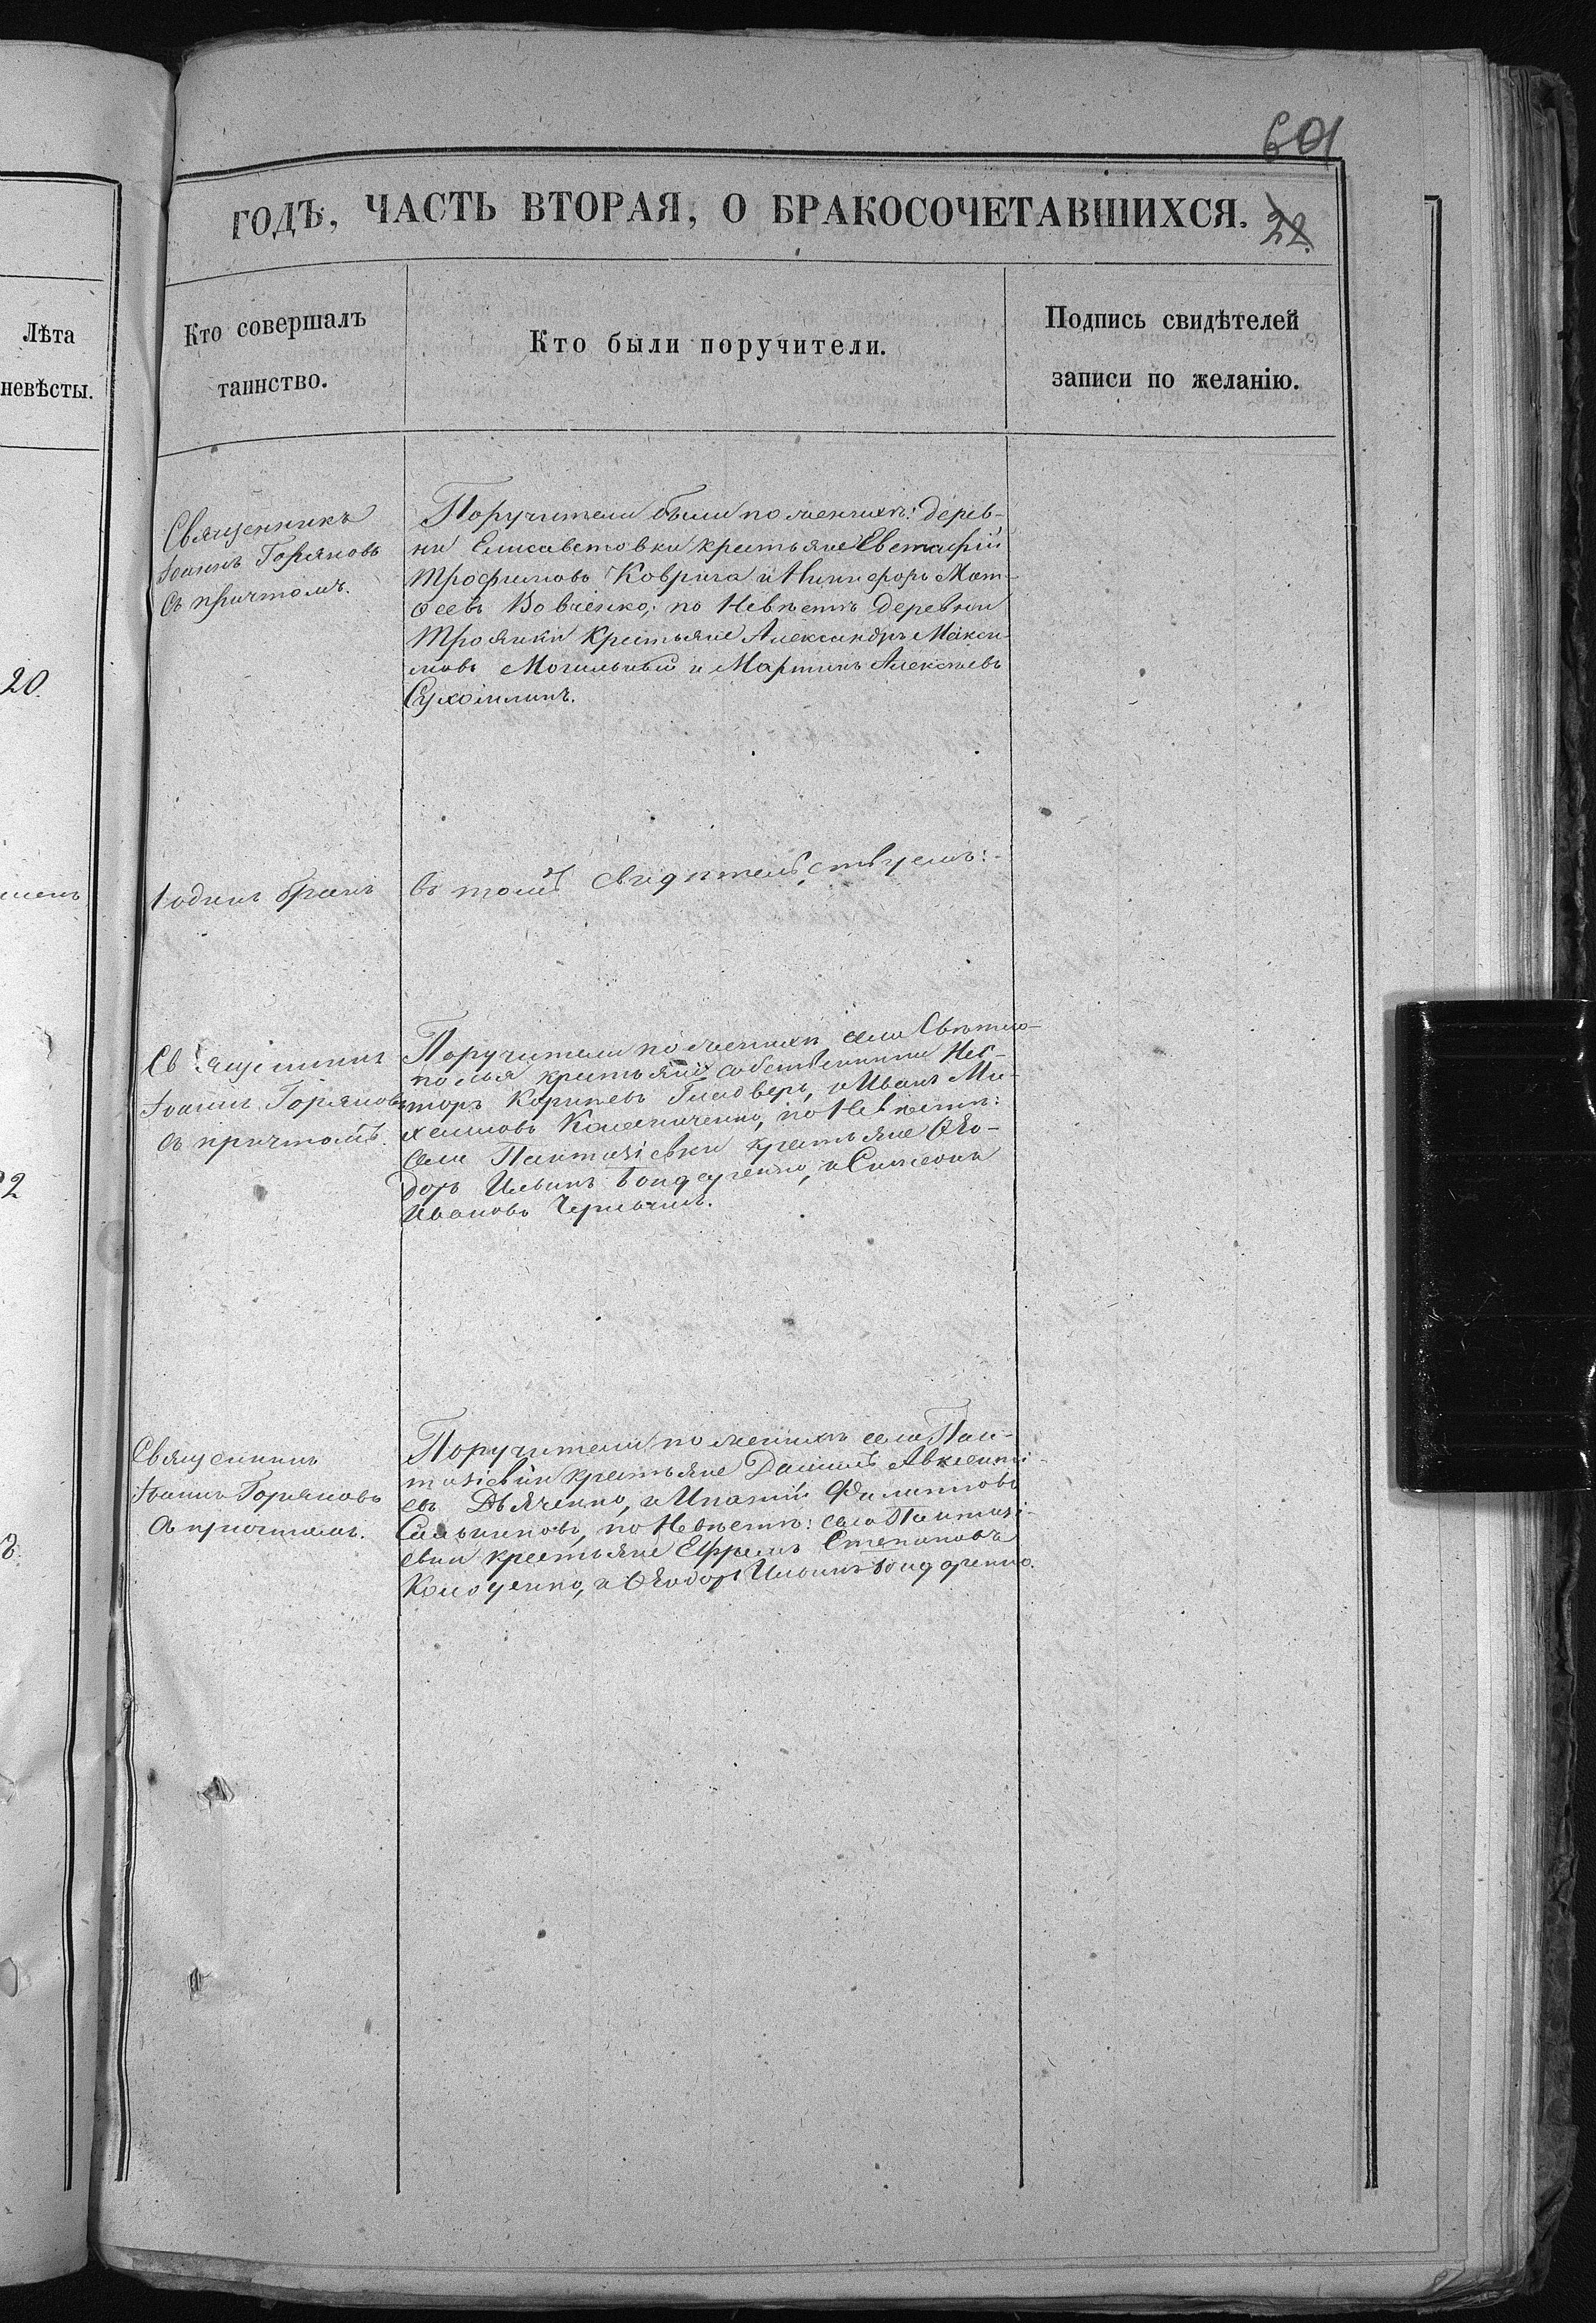 601
ГОДЪ, ЧАСТЬ ВТОРАЯ, О БРАКОСОЧЕТАВШИХСЯ.
22.
Лѣта
невѣсты.
Кто совершалъ
таинство.
Кто были поручители.
Подпись свидѣтелей
записи по желанію.
20.
Священникъ
Іоаннъ Горяновъ
съ причтомъ.
Поручители были по женихѣ: дерев-
ни Елисаветовки крестьяне Евстафій
Трофимовъ Коврига и Никифоръ Мат-
ѳеевъ Вовченко; по невѣстѣ деревни
Троянки крестьяне Александръ Макси-
мовъ Могильный и Мартинъ Алексѣевъ
Сухомлинъ.
1 одинъ бракъ
въ томъ свидѣтельствуемъ:-
22
Священникъ
Іоаннъ Горяновъ
съ причтомъ.
Поручители по женихѣ села Свѣтло-
полья крестьяне собственники Нес-
торъ Корнѣевъ и Иванъ Ми-
хаиловъ по невѣстѣ:
села Пантазіевки крестьяне Ѳео-
доръ Ильинъ Бондаренко, и Симеонъ
Ивановъ
Священникъ
Іоаннъ Горяновъ
съ причтомъ.
Поручители по женихѣ села Пан-
тазіевки крестьяне Даніилъ Авксенті-
евъ Дьяченко, и Ипатій Филиповъ
по невѣстѣ: села Пантазі-
евки крестьяне Ефремъ Степановъ
и Ѳеодоръ Ильинъ Бондаренко.